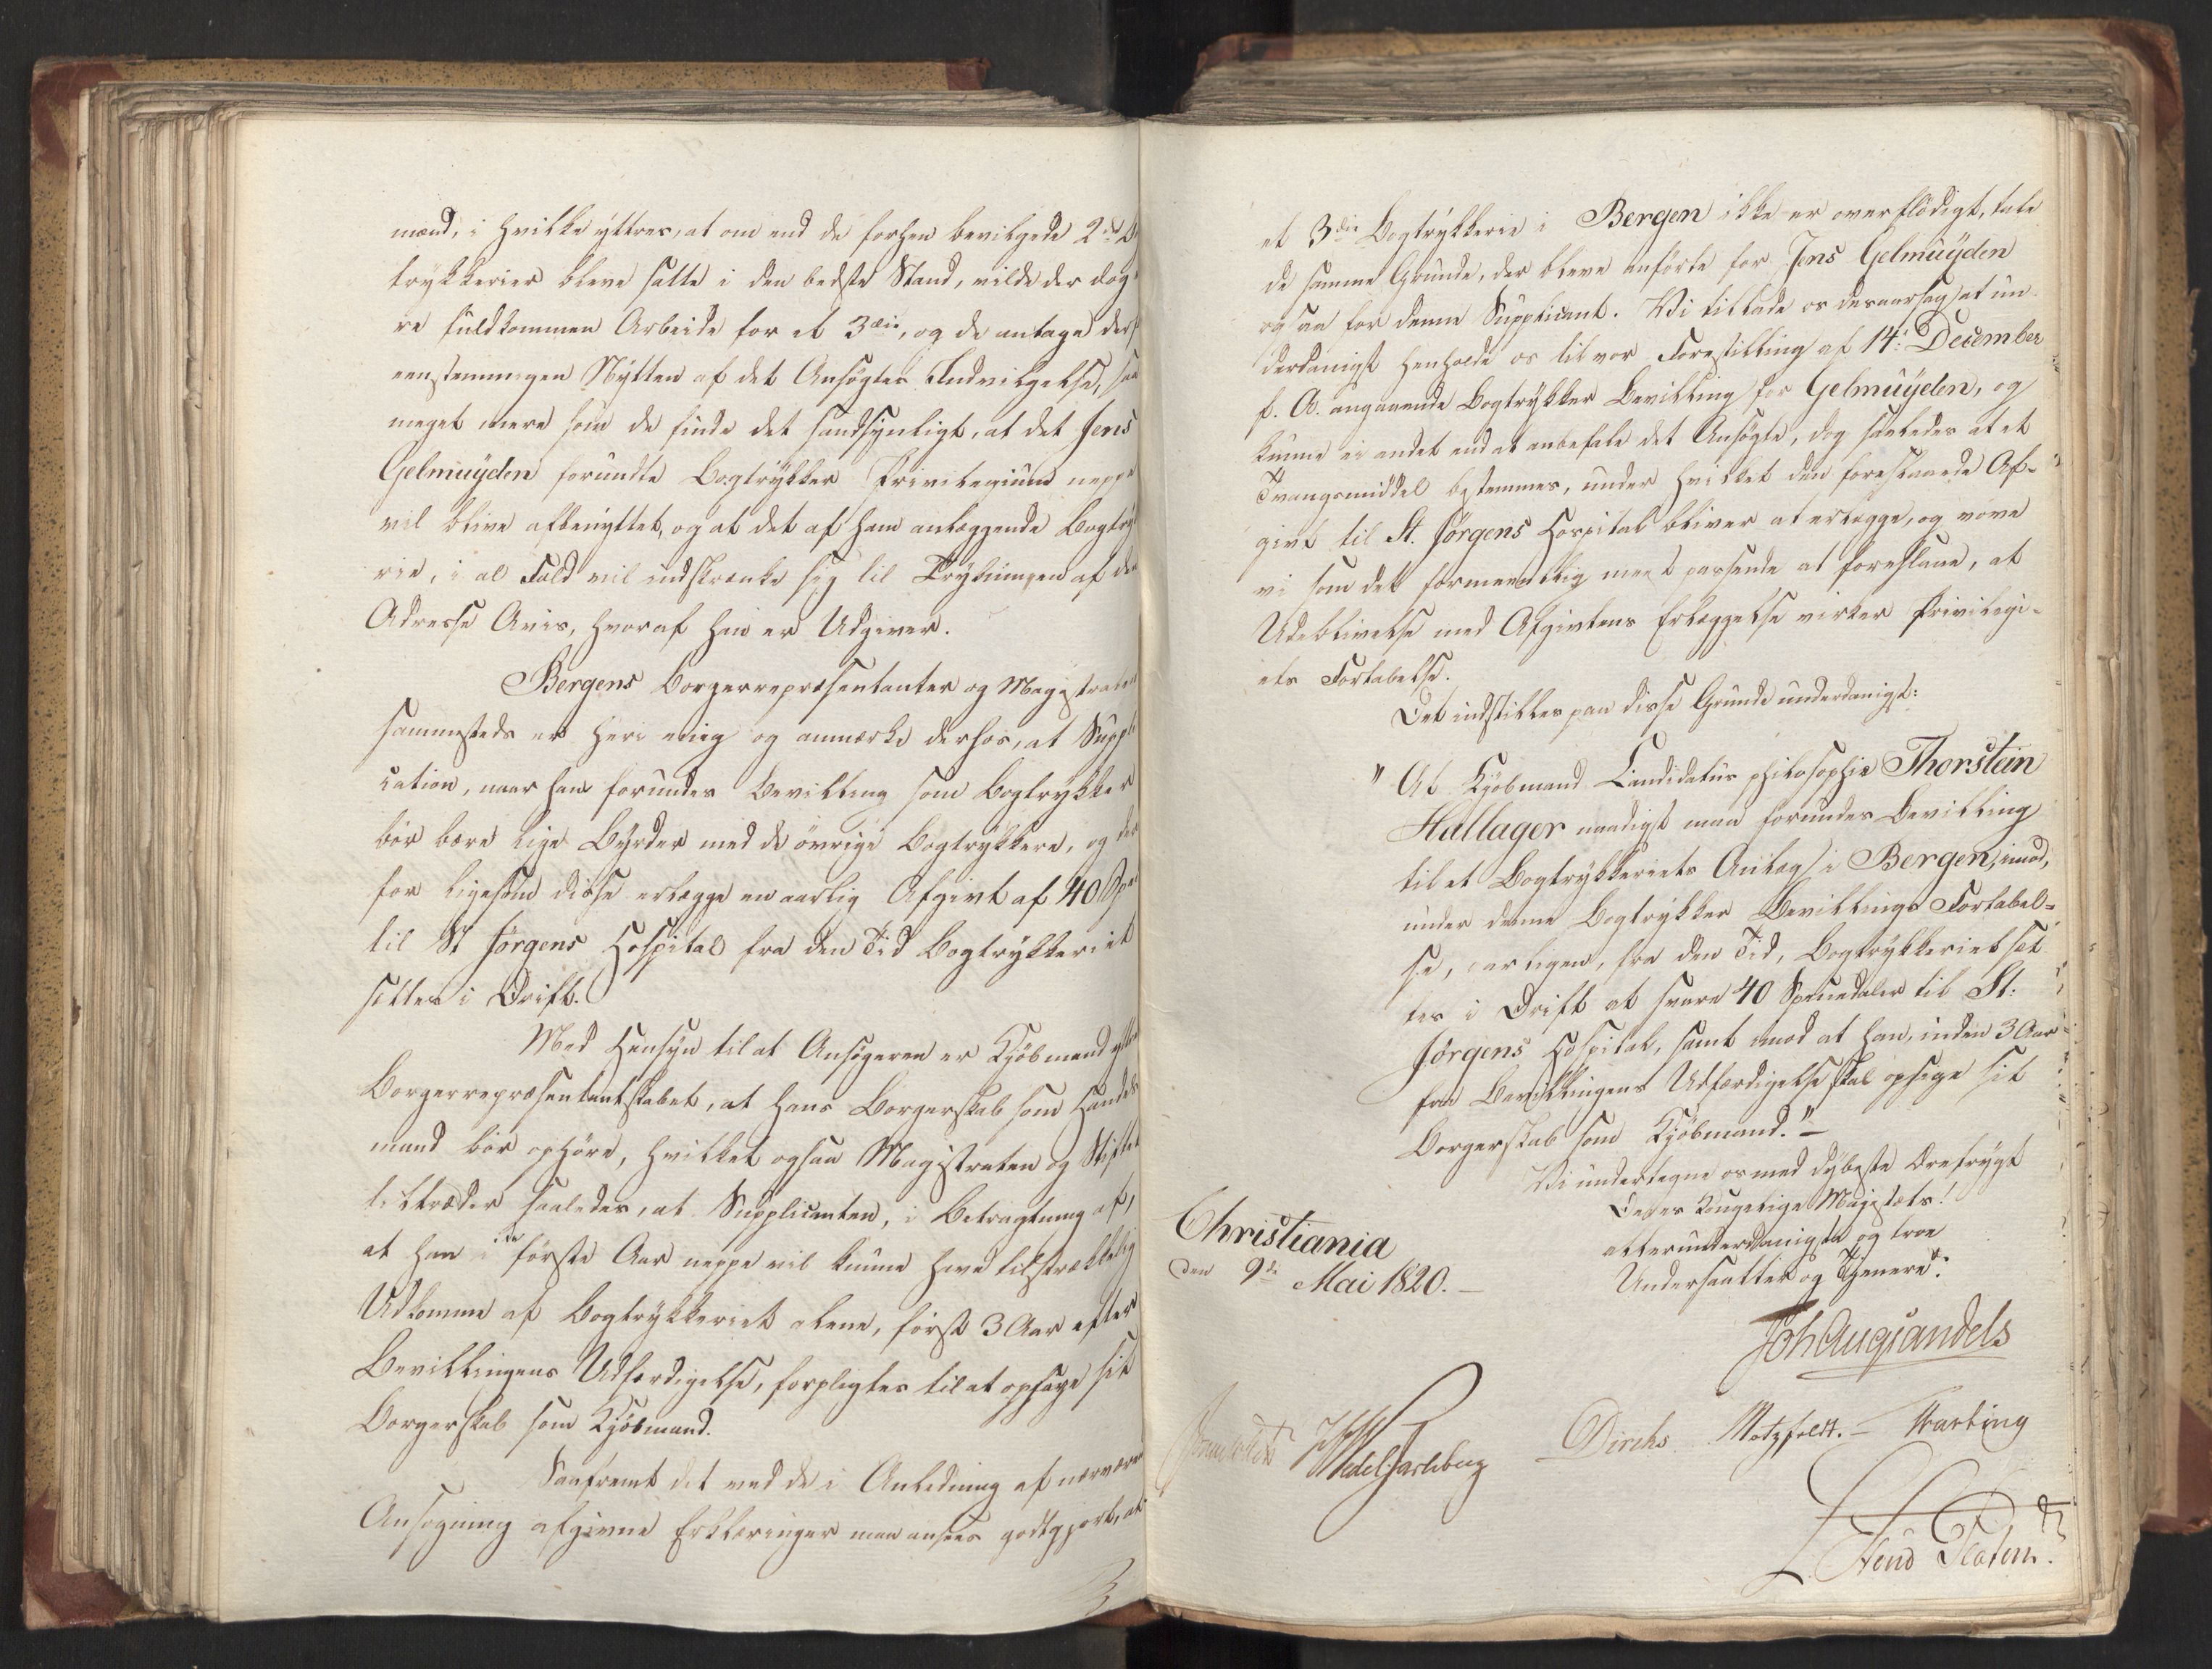 mænd, i hvilke yttres, at om end de forhen bevilgede 2de Bog
trykkerier bleve satte i den bedste Stand, vilde der dog
re fuldkommen Arbeide for et 3die, og de antage
eenstemmigen Nytten af det Ansøgtes Indvilgelse, saa
meget mere som de finde det sandsynligt, at det Jens
Gelmuyden forundte Bogtrykker Privilegium neppe
vil blive afbenyttet, og at det af ham anlæggende Bogtryk
rie, i al Fald vil indskrænke sig til Trykningen af den
Adresse Avis, hvoraf han er Udgiver.
Bergens Borgerrepræsentanter og Magistraten
sammesteds er heri enig og anmærke derhos, at Suppli
canten, naar han forundes Bevilling som Bogtrykker
bør bære lige Byrder med de øvrige Bogtrykkere, og der
for ligesom disse erlægge en aarlig Afgivt af 40 Spd
til St Jørgens Hospital fra den Tid Bogtrykkeriet
sættes i Drift.
Med Hensyn til at Ansøgeren er Kjøbmand
Borgerrepræsentantskabet, at hans Borgerskab som Handels
mand bør ophøre, hvilket ogsaa Magistraten og Stiftet
tiltræder saaledes, at Supplicanten, i Betragtning af,
at han i de første Aar neppe vil kunne have tilstrækkelig
Udkomme af Bogtrykkeriet alene, først 3 Aar efter
Bevillingens Udfærdigelse, forpligtes til at opsige sit
Borgerskab som Kjøbmand.
Saafremt det ved de i Anledning af nærvære
Ansøgning afgivne Erklæringer maa ansees godtgjort, at
et 3die Bogtrykkerie i Bergen ikke er overflødigt, tale
de samme Grunde, der bleve anførte for Jens Gelmuyden
ogsaa for denne Supplicant. Vi tillade os desaarsag at un-
derdanigst henholde os til vor Forestilling af 14: December
f. A. angaaende Bogtrykker Bevilling for Gelmuyden, og
kunne ei andet end at anbefale det Ansøgte, dog saaledes at et
Tvangsmiddel bestemmes, under hvilket den foreslaaede Af-
givt til St. Jørgens Hospital bliver at erlægge, og vove
vi som det formeentlig meest passende at foreslaae, at
Udeblivelse med Afgivtens Erlæggelse virker Privilegi-
ets Fortabelse.
Det indstilles paa disse Grunde underdanigst:
"At Kjøbmand Candidatus philosophiæ Thorstein
Hallager naadigst maa forundes Bevilling
til et Bogtrykkeriets Anlæg i Bergen, imod,
under denne Bogtrykker Bevillings Fortabel-
se, aarligen, fra den Tid, Bogtrykkeriet sæt
tes i Drift at svare 40 Speciedaler til St:
Jørgens Hospital, samt imod at han, inden 3 Aar
fra Bevillingens Udfærdigelse skal opsige sit
Borgerskab som Kjøbmand."
Vi undertegne os med dybeste Ærefrygt
Deres Kongelige Majestæts!
allerunderdanigste og troe
Undersaatter og Tjenere.
Christiania
den 9de Mai 1820.
Joh Aug Sandels
Sommerhielm HWedelJarlsberg Diriks Motzfeldt. Krebs Hartvig